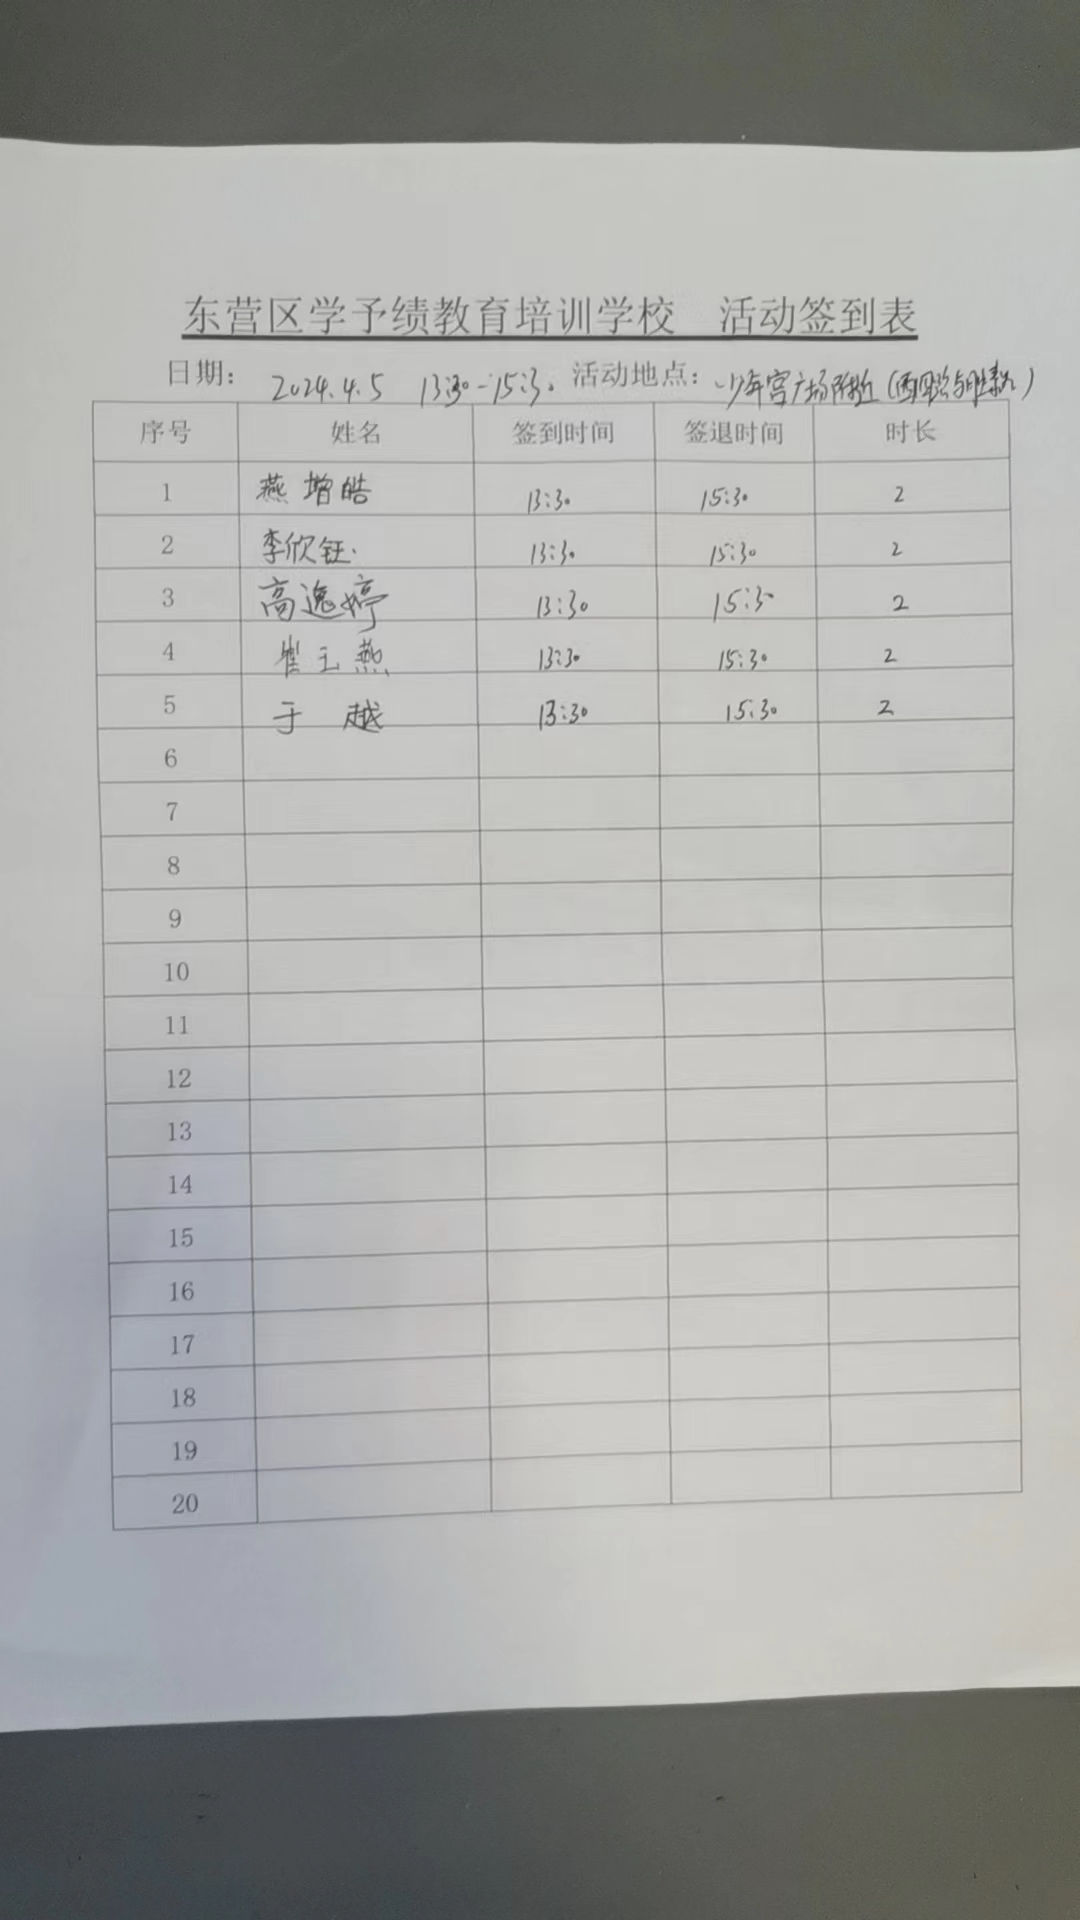 东营区学予绩教育培训学校 活动签到表
日期: 2024.4.5 13:30-15:30 活动地点: 少年宫广场附近
序号 姓名 签到时间 签退时间 时长
1 燕增皓 13:30 15:30 2
2 李欣钰. 13:30 15:30 2
3 高逸婷 13:30 15:30 2
4 崔玉燕 13:30 15:30 2
5 于越 13:30 15:30 2
6
7
8
9
10
11
12
13
14
15
16
17
18
19
20